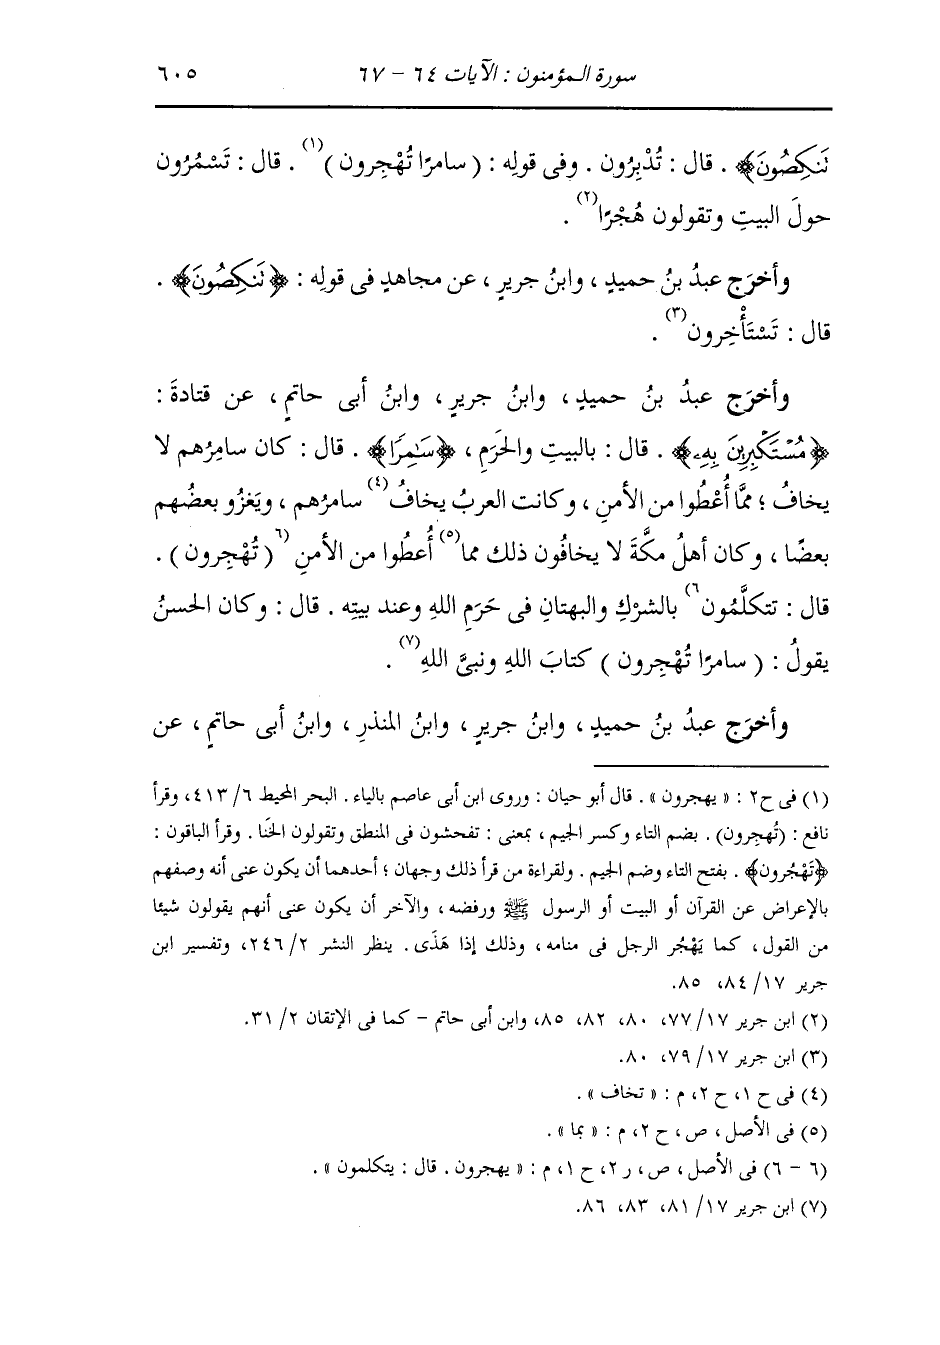 سورة المؤمنون : الآيات ٦٤ – ٦٧ ٦٠٥
نَنكِصُونَ﴾ . قال : تُدْبِرُون . وفى قولِه : ( سامرًا تُهْجِرون )(١) . قال : تَسْمُرُون
حولَ البيتِ وتقولون هُجْرًا(٢) .
وأخرَج عبدُ بنُ حميدٍ ، وابنُ جريرٍ ، عن مجاهدٍ فى قولِه : ﴿نَنكِصُونَ﴾ .
قال : تَسْتَأْخِرون(٣) .
وأخرَج عبدُ بنُ حميدٍ ، وابنُ جريرٍ ، وابنُ أبى حاتمٍ ، عن قتادةَ :
﴿مُسْتَكْبِرِينَ بِهِۦ﴾ . قال : بالبيتِ والحَرَمِ ، ﴿سَٰمِرًا﴾ . قال : كان سامِرُهم لا
يخافُ ؛ ممَّا أُعْطُوا من الأمنِ ، وكانت العربُ يخافُ(٤) سامرُهم ، ويَغزُو بعضُهم
بعضًا ، وكان أهلُ مكَّةَ لا يخافُون ذلك مما(٥) أُعطُوا من الأمنِ (٦( تُهْجِرون ) .
قال : تتكلَّمُون٦) بالشركِ والبهتانِ فى حَرَمِ اللهِ وعند بيتِه . قال : وكان الحسنُ
يقولُ : ( سامرًا تُهْجِرون ) كتابَ اللهِ ونبىَّ اللهِ(٧) .
وأخرَج عبدُ بنُ حميدٍ ، وابنُ جريرٍ ، وابنُ المنذرِ ، وابنُ أبى حاتمٍ ، عن
(١) فى ح٢ : « يهجرون » . قال أبو حيان : وروى ابن أبى عاصم بالياء . البحر المحيط ٦/ ٤١٣، وقرأ
نافع : (تُهجِرون) . بضم التاء وكسر الجيم ، بمعنى : تفحشون فى المنطق وتقولون الخَنا . وقرأ الباقون :
﴿تَهْجُرون﴾ . بفتح التاء وضم الجيم . ولقراءة من قرأ ذلك وجهان ؛ أحدهما أن يكون عنى أنه وصفهم
بالإعراض عن القرآن أو البيت أو الرسول ﷺ ورفضه ، والآخر أن يكون عنى أنهم يقولون شيئا
من القول ، كما يَهْجُر الرجل فى منامه ، وذلك إذا هَذَى . ينظر النشر ٢/ ٢٤٦، وتفسير ابن
جرير ١٧/ ٨٤، ٨٥.
(٢) ابن جرير ١٧/ ٧٧، ٨٠، ٨٢، ٨٥، وابن أبى حاتم – كما فى الإتقان ٢/ ٣١.
(٣) ابن جرير ١٧/ ٧٩، ٨٠.
(٤) فى ح ١، ح ٢، م : « تخاف » .
(٥) فى الأصل ، ص ، ح ٢، م : « بما » .
(٦ – ٦) فى الأصل ، ص ، ر ٢، ح ١، م : « يهجرون . قال : يتكلمون » .
(٧) ابن جرير ١٧/ ٨١، ٨٣، ٨٦.